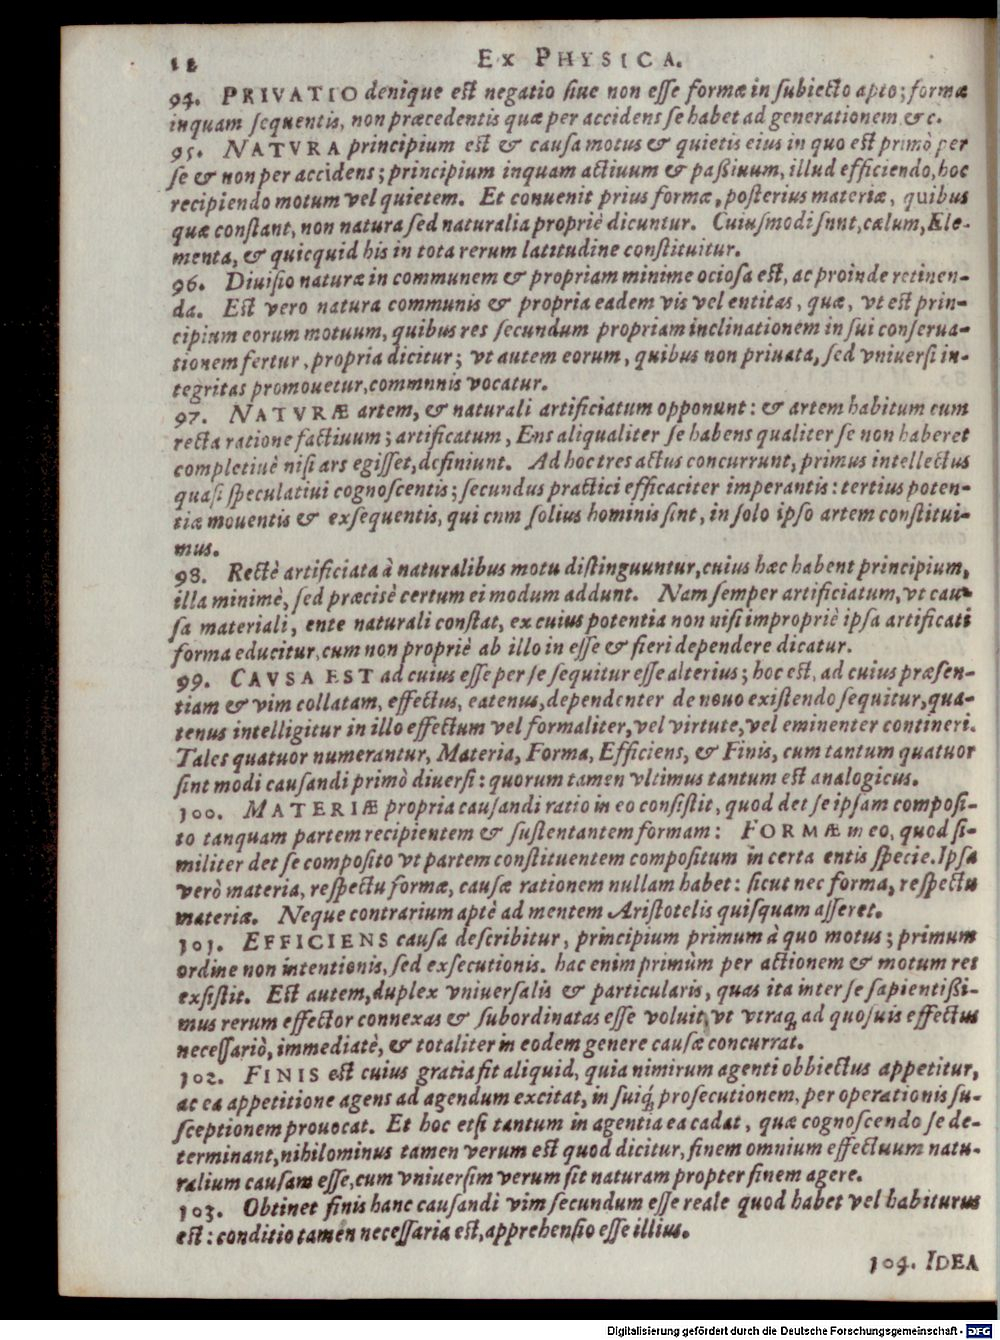 12 EX PHYSICA.
94. PRIVATIO denique est negatio siue non esse formæ in subiecto apto; formæ
inquam sequentis, non præcedentis quæ per accidens se habet ad generationem &c.
95. NATVRA principium est & causa motus & quietis eius in quo est primò per
se & non per accidens; principium inquam actiuum & paßiuum, illud efficiendo, hoc
recipiendo motum vel quietem. Et conuenit prius formæ, posterius materiæ, quibus
quæ constant, non natura sed naturalia propriè dicuntur. Cuiusmodi sunt, cælum, Ele-
menta, & quicquid his in tota rerum latitudine constituitur.
96. Diuisio naturæ in communem & propriam minime ociosa est, ac proinde retinen-
da. Est vero natura communis & propria eadem vis vel entitas, quæ, vt est prin-
cipium eorum motuum, quibus res secundum propriam inclinationem in sui conserua-
tionem fertur, propria dicitur; vt autem eorum, quibus non priuata, sed vniuersi in-
tegritas promouetur, commnnis vocatur.
97. NATVRÆ artem, & naturali artificiatum opponunt: & artem habitum cum
recta ratione factiuum; artificatum, Ens aliqualiter se habens qualiter se non haberet
completiuè nisi ars egisset, definiunt. Ad hoc tres actus concurrunt, primus intellectus
quasi speculatiui cognoscentis; secundus practici efficaciter imperantis: tertius poten-
tiæ mouentis & exsequentis, qui cnm solius hominis sint, in solo ipso artem constitui-
mus.
98. Rectè artificiata à naturalibus motu distinguuntur, cuius hæc habent principium,
illa minimè, sed præcisè certum ei modum addunt. Nam semper artificiatum, vt cau-
sa materiali, ente naturali constat, ex cuius potentia non nisi impropriè ipsa artificati
forma educitur, cum non propriè ab illo in esse & fieri dependere dicatur.
99. CAVSA EST ad cuius esse per se sequitur esse alterius; hoc est, ad cuius præsen-
tiam & vim collatam, effectus, eatenus, dependenter de nouo existendo sequitur, qua-
tenus intelligitur in illo effectum vel formaliter, vel virtute, vel eminenter contineri.
Tales quatuor numerantur, Materia, Forma, Efficiens, & Finis, cum tantum quatuor
sint modi causandi primò diuersi: quorum tamen vltimus tantum est analogicus.
100. MATERIÆ propria causandi ratio in eo consistit, quod det se ipsam composi-
to tanquam partem recipientem & sustentantem formam: FORMÆ in eo, quod si-
militer det se composito vt partem constituentem compositum in certa entis specie. Ipsa
verò materia, respectu formæ, causæ rationem nullam habet: sicut nec forma, respectu
materiæ. Neque contrarium aptè ad mentem Aristotelis quisquam asseret.
101. EFFICIENS causa describitur, principium primum à quo motus; primum
ordine non intentionis, sed exsecutionis. hac enim primùm per actionem & motum res
exsistit. Est autem, duplex vniuersalis & particularis, quas ita inter se sapientißi-
mus rerum effector connexas & subordinatas esse voluit, vt vtraq́ ad quosuis effectus
necessariò, immediatè, & totaliter in eodem genere causæ concurrat.
102. FINIS est cuius gratia fit aliquid, quia nimirum agenti obbiectus appetitur,
ac ea appetitione agens ad agendum excitat, in suiq́ prosecutionem, per operationis su-
sceptionem prouocat. Et hoc etsi tantum in agentia ea cadat, quæ cognoscendo se de-
terminant, nihilominus tamen verum est quod dicitur, finem omnium effectuum natu-
ralium causam esse, cum vniuersim verum sit naturam propter finem agere.
103. Obtinet finis hanc causandi vim secundum esse reale quod habet vel habiturus
est: conditio tamen necessaria est, apprehensio esse illius.
104. IDEA
Digitalisierung gefördert durch die Deutsche Forschungsgemeinschaft - DFG